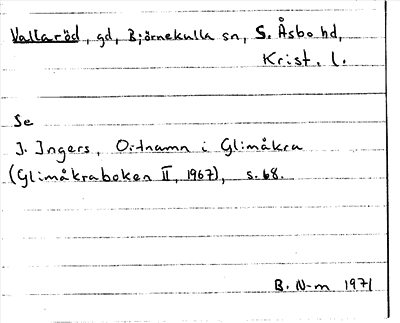 Vallaröd, gd, Björnekulla sn, S. Åsbo hd,
Krist. l.
Se
J. Ingers, Ortnamn i Glimåkra
(Glimåkraboken II, 1967), s. 68.
B. N-m 1971